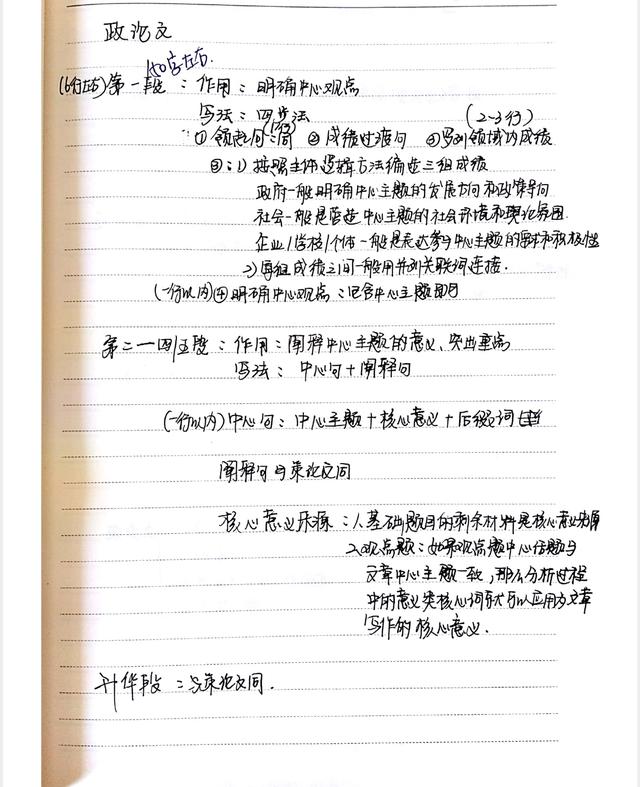 政论文
150字左右.
(6行左右)第一段：作用：明确中心观点
写法：四步法 (2-3行)
①领起句：简 (1行) ②成绩过渡句 ③罗列领域内成绩
③：1) 按照主体逻辑方法编造三组成绩
政府一般明确中心主题的发展方向和政策导向
社会一般是营造中心主题的社会环境和舆论氛围
企业/学校/个体一般是表达参与中心主题的需求和积极性
2) 每组成绩之间一般用并列关联词连接.
(一行以内)④明确中心观点：包含中心主题即可
第二一四/五段：作用：阐释中心主题的意义、突出重点
写法：中心句+阐释句
(一行以内)中心句：中心主题+核心意义+后缀词
阐释句与策论文同
核心意义来源：1.基础题目的剩余材料是核心意义
2.观点题：如果观点题中心话题与
文章中心主题一致，那么分析过程
中的意义类核心词就可以应用为文章
写作的核心意义.
升华段：与策论文同.